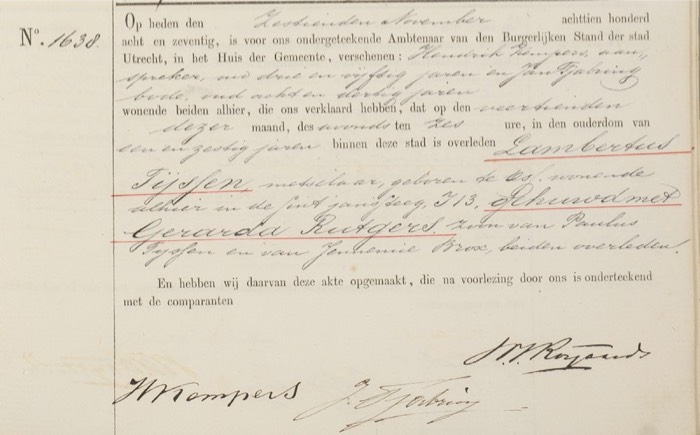 No. 1638.
Op heden den zestienden November achttien honderd
acht en zeventig, is voor ons ondergeteekende Ambtenaar van den Burgerlijken Stand der stad
Utrecht, in het Huis der Gemeente, verschenen: Hendrik Kempers, aan-
spreker, oud drie en vijftig jaren en Jan Tjabring
bode, oud acht en dertig jaren
wonende beiden alhier, die ons verklaard hebben, dat op den veertienden
dezer maand, des avonds ten zes ure, in den ouderdom van
een en zestig jaren binnen deze stad is overleden Lambertus
Tijssen, metselaar, geboren te wonende
alhier in de Sint Jansteeg, I 13, gehuwd met
Gerarda Rutgers, zoon van Paulus
Tyssen en van Jennemie Brox, beiden overleden.
En hebben wij daarvan deze akte opgemaakt, die na voorlezing door ons is onderteekend
met de comparanten
Royaards
HKempers J. Tjabring